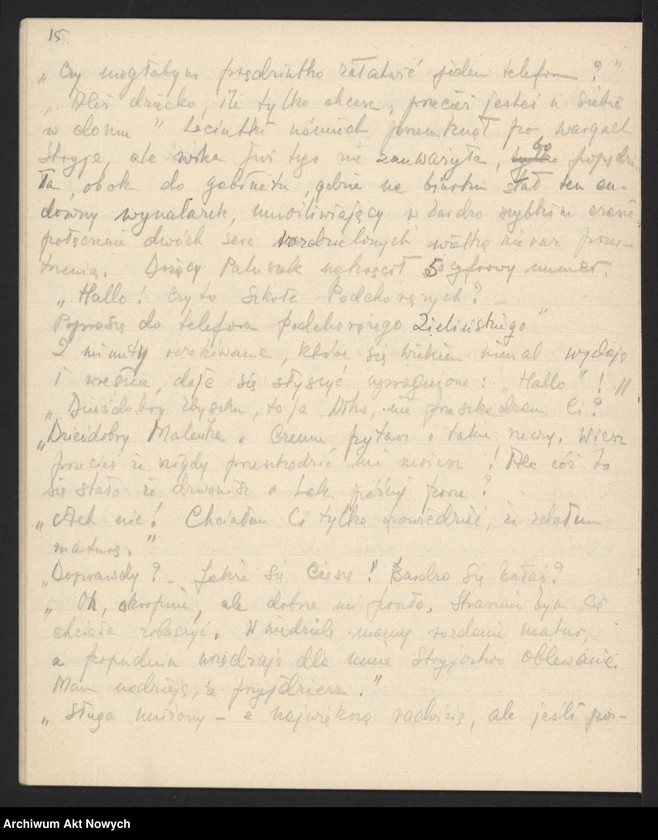 15
„Czy mogłabym prędziutko załatwić jeden telefon?"
„Ależ dziecko, ile tylko chcesz, przecież jesteś u siebie
w domu" Leciutki uśmiech przemknął po wargach
Stryja, ale Wika już tego nie zauważyła, bo popędzi-
ła, obok do gabinetu, gdzie na biurku stał ten cu-
downy wynalazek, umożliwiający w bardzo szybkim czasie
połączenie dwóch serc rozdzielonych wielką nieraz przes-
trzenią. Drżący Paluszek wykręcił 5o cyfrowy numer.
„Hallo! Czy to Szkoła Podchorążych? –
Poproszę do telefonu podchorążego Zielińskiego"
2 minuty oczekiwania, które się wiekiem niemal wydają
i wreszcie, daje się słyszeć upragnione: „Hallo"!
„Dzieńdobry Zbyszku, to ja Wika, nie przeszkadzam Ci?
„Dzieńdobry Maleńka. Czemu pytasz o takie rzeczy. Wiesz
przecież że nigdy przeszkodzić mi nie możesz! Ale cóż to
się stało że dzwonisz o tak późnej porze?
„Ach nic! Chciałam Ci tylko powiedzieć, że zdałam
maturę."
„Doprawdy? – Jakże się cieszę! Bardzo się bałaś?
„Oh, okropnie, ale dobrze mi poszło. Strasznie bym Cię
chciała zobaczyć. W niedzielę mamy rozdanie matur,
a popołudniu urządzają dla mnie Stryjostwo oblewanie.
Mam nadzieję, że przyjdziesz."
„Sługa uniżony – z największą radością, ale jeśli poz-
Archiwum Akt Nowych